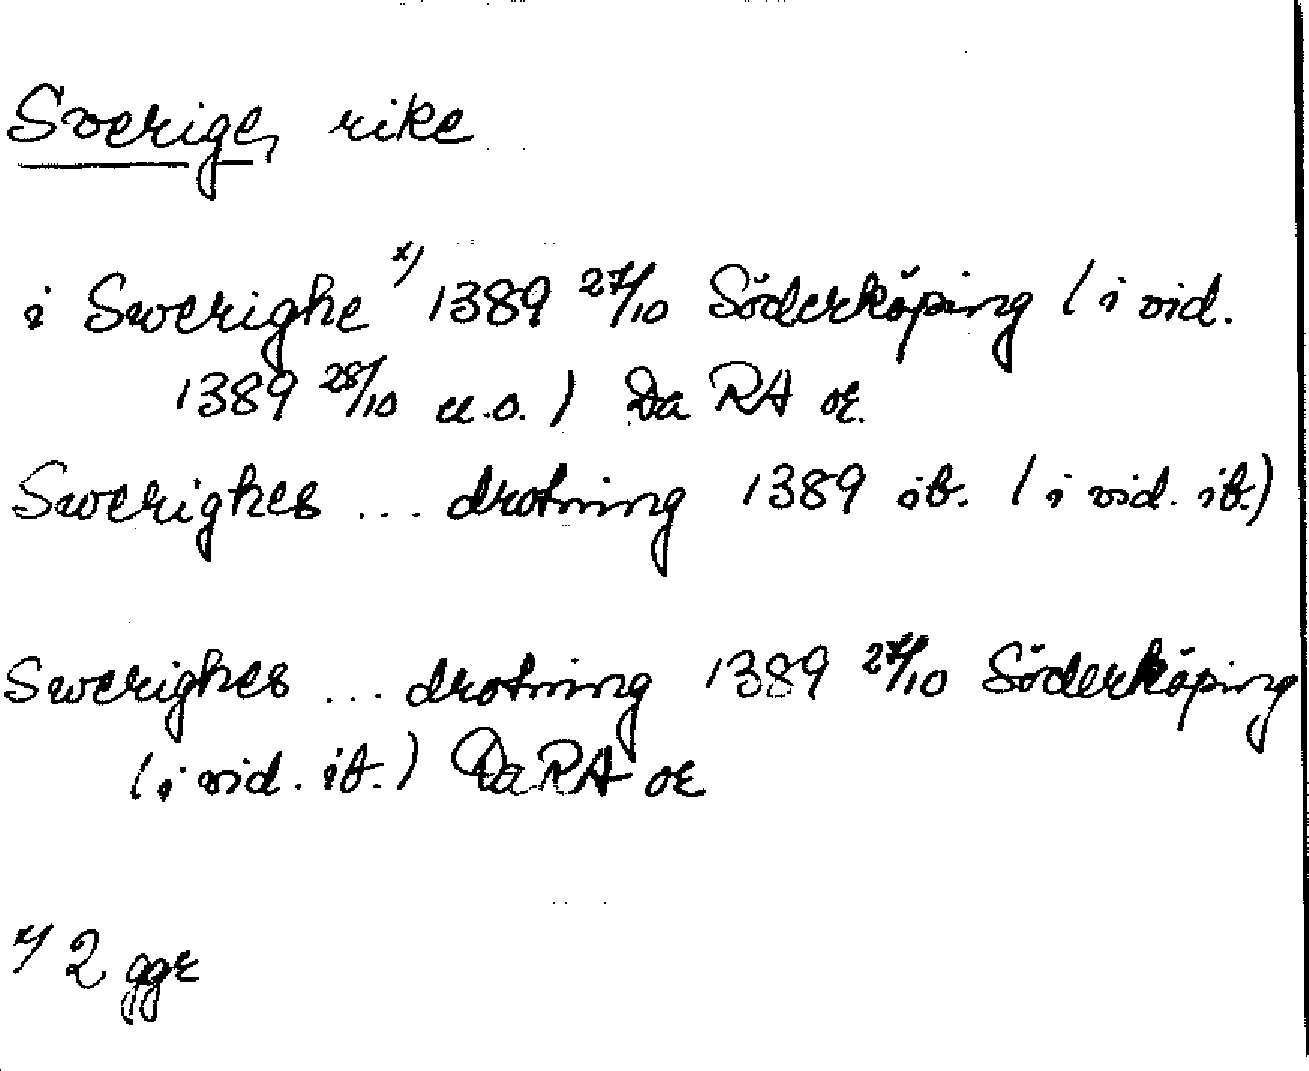 Sverige, rike
i Swerighe x) 1389 27/10 Söderköping (i vid.
1389 28/10 u.o.) Da RA or.
Swerighes ... drotning 1389 ib. (i vid. ib.)
Swerighes ... drotning 1389 27/10 Söderköping
(i vid. ib.) Da RA or
x) 2 ggr